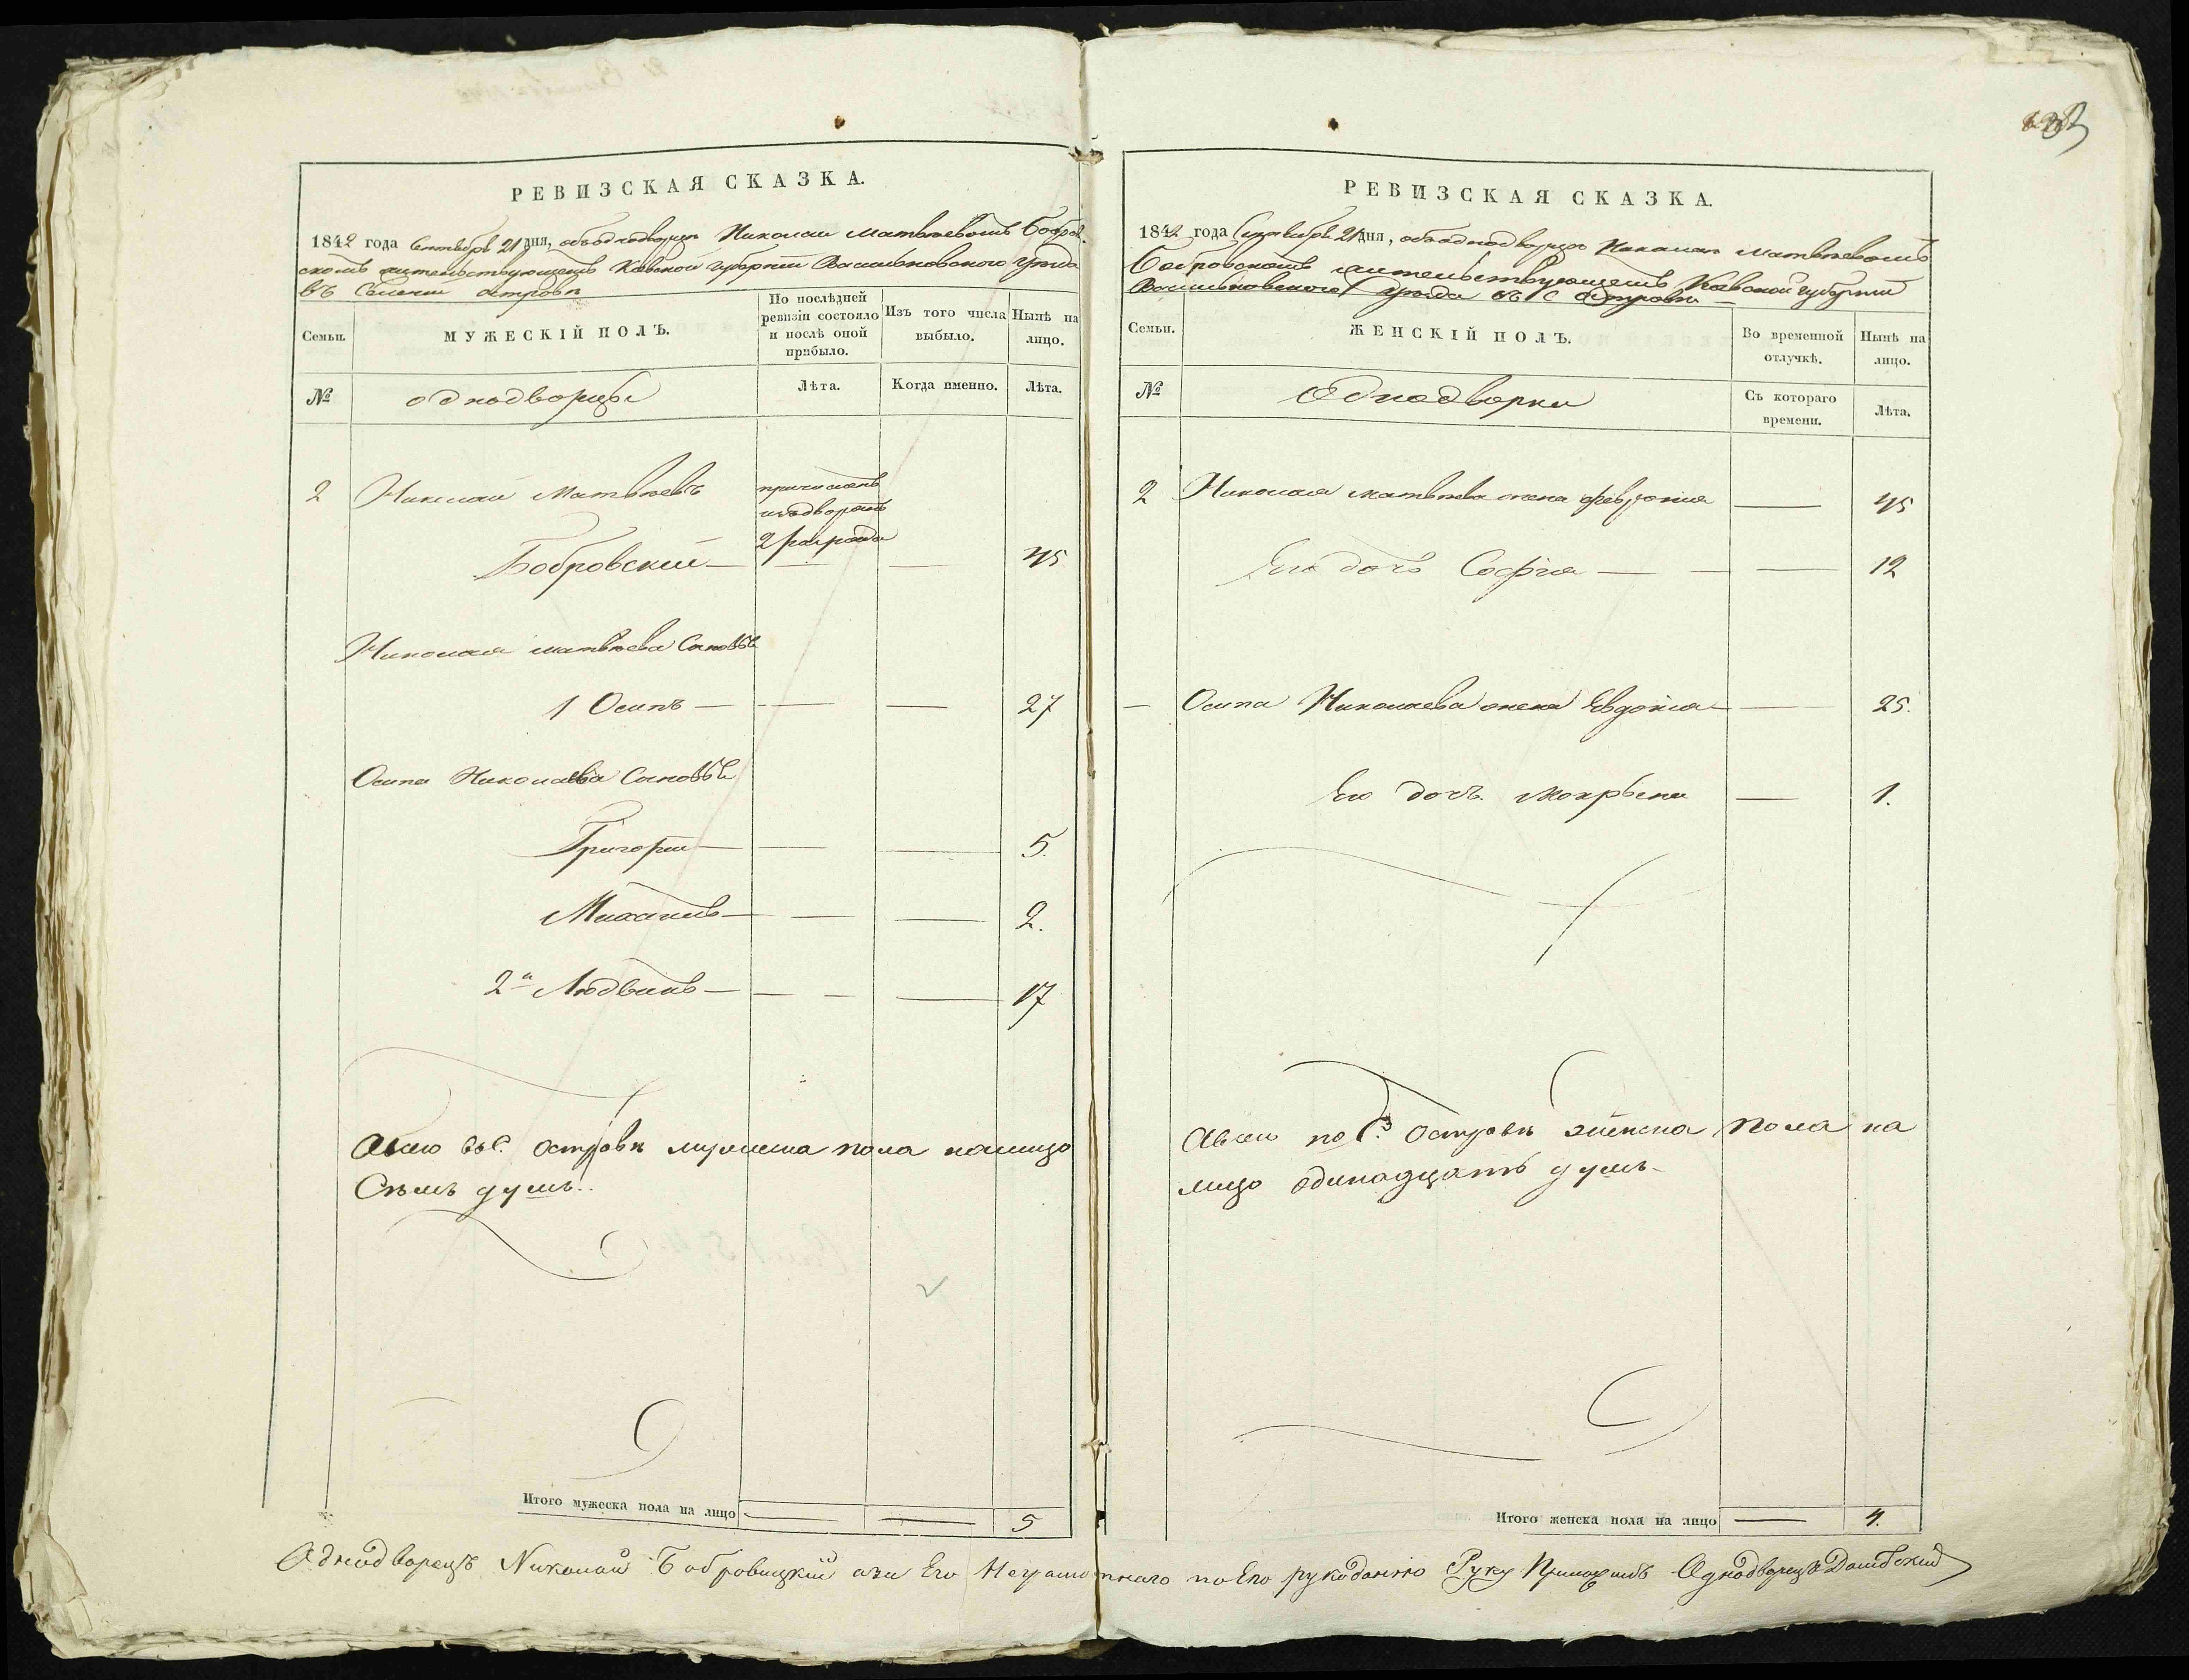 РЕВИЗСКАЯ СКАЗКА.
1842 года Сентября 21 дня, объ однодворцѣ Николаи Матвѣевомъ Бобров-
скомъ жительствующемъ Кіевской губерніи Васильковскаго уѣзда
въ Селеніи островѣ
Семьи.
МУЖЕСКІЙ ПОЛЪ.
По послѣдней ревизіи состояло и послѣ оной прибыло.
Изъ того числа выбыло.
Нынѣ на лицо.
№
однодворцы
Лѣта.
Когда именно.
Лѣта.
2 Николай Матвѣевъ
причисленъ
2 разряда
Бобровский — — — 45
Николая матвѣева Сыновье
1 Осипъ — — — 27
Осипа Николаева Сыновье
Григорий — — — 5.
Михаилъ — — — 2.
2й Людвикъ — — — 17
Авсего въ С. островѣ мужеска пола налицо
Сѣмь душъ..
Итого мужеска пола на лицо — — 5
РЕВИЗСКАЯ СКАЗКА.
1842 года Сентября 21 дня, объ однодворцѣ Николаи Матвѣевомъ
Бобровскомъ жительствующемъ Кіевской губерніи
Васильковскаго уѣзда въ С островѣ —
Семьи.
ЖЕНСКІЙ ПОЛЪ.
Во временной отлучкѣ.
Нынѣ на лицо.
№
Однодворки
Съ котораго времени.
Лѣта.
2 Николая матвѣева жена Феврония — 45
Его дочь София — — — 12
— Осипа Николаева жена Евдокия — 25.
Его дочь мокрына — 1.
Авсего по С. Островѣ женска пола на
лицо одинадцать душъ —
Итого женска пола на лицо — 4.
Однодворецъ Николай Бобровицкій азаи Его Неграмотнаго по Его рукоданію Руку Приложилъ Однодворецъ